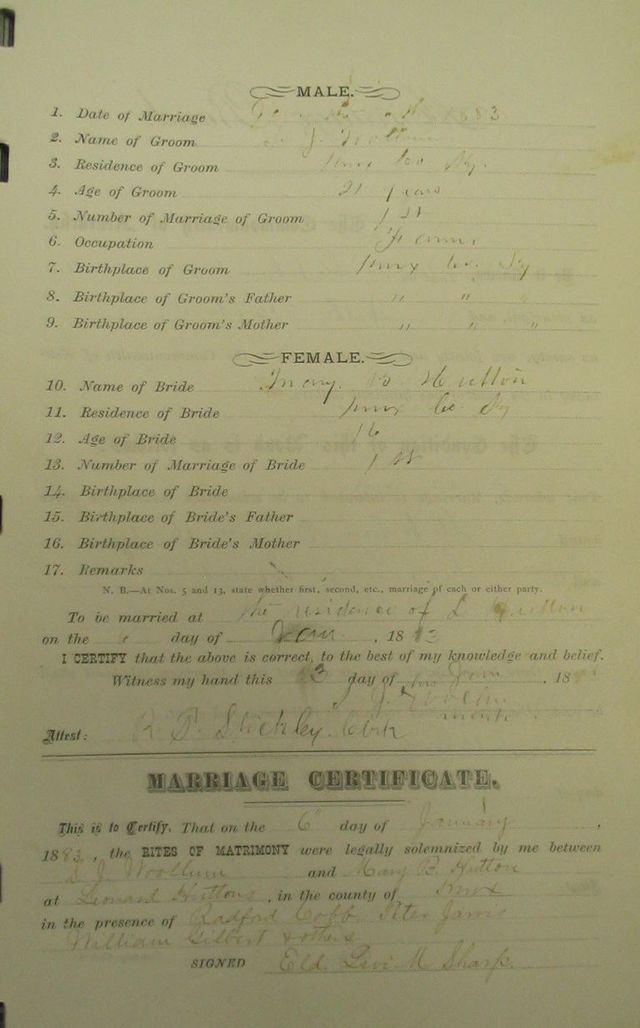 MALE.
1. Date of Marriage 1883
2. Name of Groom J. Woollum
3. Residence of Groom Knox Co Ky.
4. Age of Groom 21 years
5. Number of Marriage of Groom 1st
6. Occupation Farmer
7. Birthplace of Groom Knox Co. Ky
8. Birthplace of Groom's Father " " "
9. Birthplace of Groom's Mother " " "
FEMALE.
10. Name of Bride Mary. B Hutton
11. Residence of Bride Knox Co. Ky
12. Age of Bride 16
13. Number of Marriage of Bride 1st
14. Birthplace of Bride
15. Birthplace of Bride's Father
16. Birthplace of Bride's Mother
17. Remarks
N. B.—At Nos. 5 and 13, state whether first, second, etc., marriage of each or either party.
To be married at the residence of L Hutton
on the day of Jan , 1883
I CERTIFY that the above is correct, to the best of my knowledge and belief.
Witness my hand this 3 day of Jan , 188
his
J. Woollum
mark
Attest: R. P. Stickley. Clerk
MARRIAGE CERTIFICATE.
This is to Certify, That on the 6" day of January ,
1883, the RITES OF MATRIMONY were legally solemnized by me between
S J Woollum and Mary B. Hutton
at Leonard Huttons, in the county of Knox
in the presence of Radford Cobb Peter Jarvis
William Gilbert & others
SIGNED Eld. Levi M Sharp.